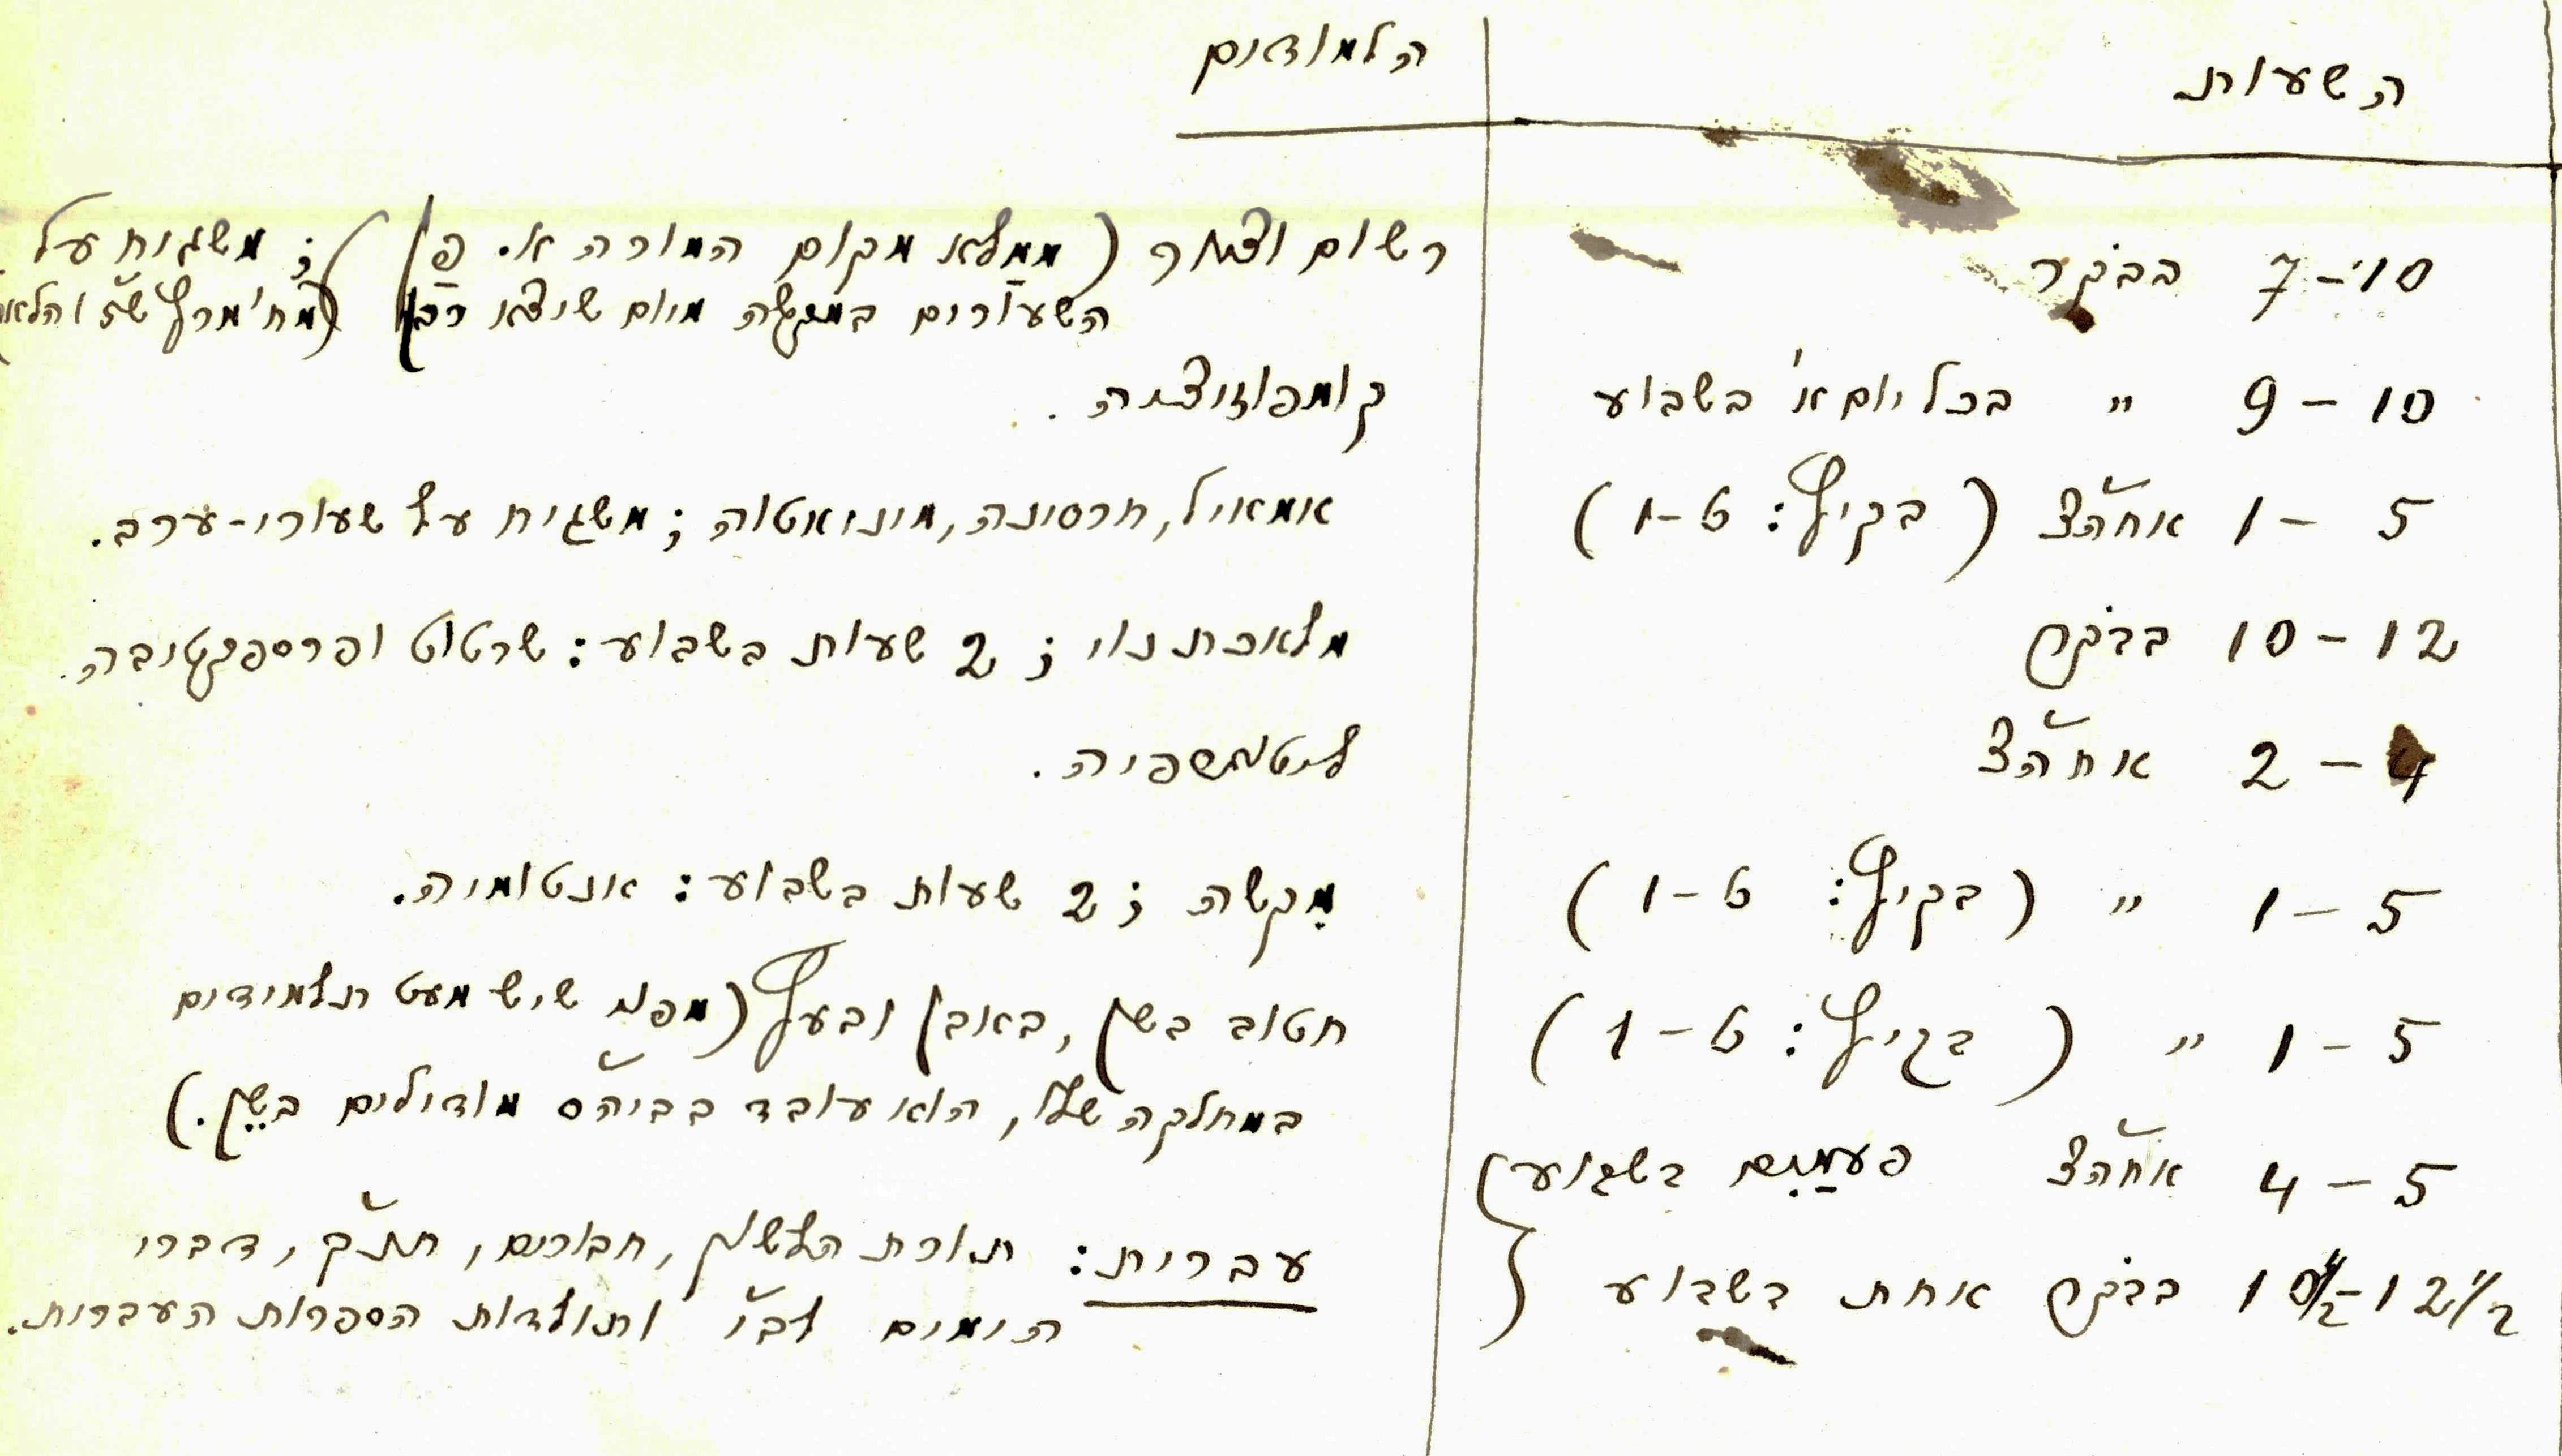 השעות הלמודים
7-10 בבקר רשום וציור (ממַלא מקום המורה א. פַן); משגיח על
השעורים במקשה מיום שיצא רבן (מח' מרץ ש"ז והלאה)
9-10 " בכל יום א' בשבוע קומפוזיציה.
1-5 אחה"צ (בקיץ: 1-6) אמאיל, חרסינה, מיניאטורה; משגיח על שעורי-ערב.
10-12 בבקר מלאכת נוי; 2 שעות בשבוע: שרטוט ופרספקטיבה.
2-4 אחה"צ ליטוגרפיה.
1-5 " (בקיץ: 1-6) מִקשה; 2 שעות בשבוע: אנטומיה.
1-5 " (בקיץ: 1-6) חטוב בשן, באבן ובעץ (מפני שיש מעט תלמידים
במחלקה שלו, הוא עובד בביה"ס מודילים בשֵן.)
4-5 אחה"צ פעמַיִם בשבוע
10½-12½ בבקר אחת בשבוע עברית: תורת הלשון, חבורים, תנ"ך, דברי
הימים לב"י ותולדות הספרות העברית.